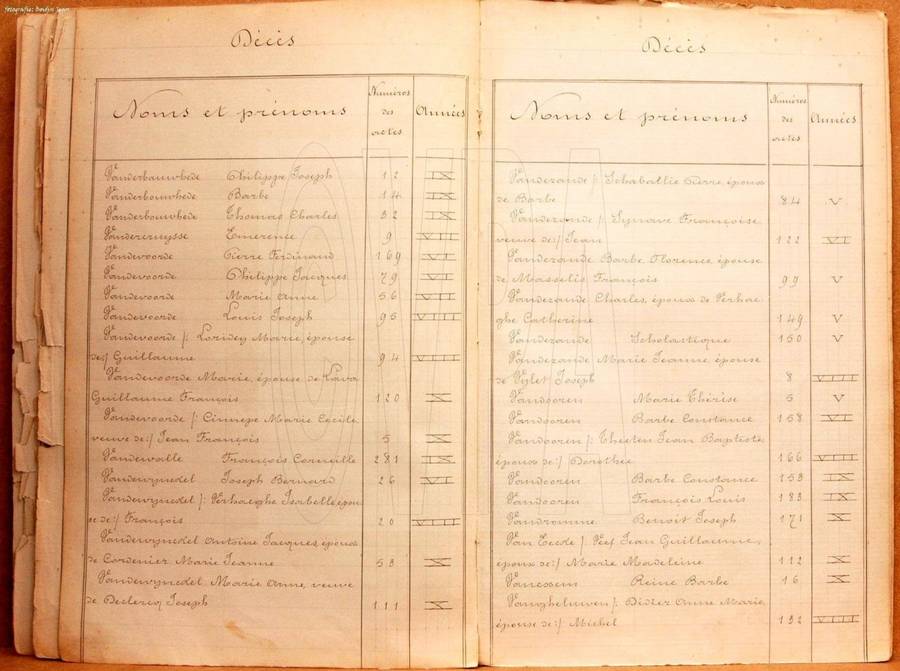 Décès
Noms et prénoms
Numéros des actes
Années
Vanderbauwhede Philippe Joseph 12 IX
Vanderbouwhede Barbe 14 IX
Vanderbouwhede Thomas Charles 32 IX
Vandercruysse Emerence 9 VII
Vandevoorde Pierre Ferdinand 169 VI
Vandevoorde Philippe Jacques 79 VI
Vandevoorde Marie Anne 56 VII
Vandevoorde Louis Joseph 95 VIII
Vandevoorde /: Loridey Marie, épouse
de:/ Guillaume 94 VIII
Vandevoorde Marie, épouse de Lava
Guillaume François 120 X
Vandevoorde /: Cinnepe Marie Cecile
veuve de:/ Jean François 5 X
Vandewalle François Corneille 281 IX
Vandewynckel Joseph Bernard 26 VI
Vandewynckel /: Verhaeghe Isabelle, épou
se de:/ François 20 VIII
Vandewynckel Antoine Jacques, époux
de Cordenier Marie Jeanne 53 X
Vandewynckel Marie Anne, veuve
de Declercq Joseph 111 X
Décès
Noms et prénoms
Numéros des actes
Années
Vandezande /: Schaballie Pierre, époux
de Barbe 84 V
Vandezande /: Synave Françoise
veuve de:/ Jean 122 VI
Vandezande Barbe Florence, épouse
de Masselis François 99 V
Vandezande Charles, époux de Verhae
ghe Catherine 149 V
Vandezande Scholastique 150 V
Vandezande Marie Jeanne, épouse
de Joseph 8 VIII
Vandooren Marie Thérèse 5 V
Vandooren Barbe Constance 158 VI
Vandooren /: Jean Baptiste,
époux de:/ Dorothée 166 VIII
Vandooren Barbe Constance 153 IX
Vandooren François Louis 183 IX
Vandromme Benoit Joseph 171 X
Van Eecke /: Jean Guillaume,
époux de:/ Marie Madeleine 112 X
Reine Barbe 16 X
Vangheluwen /: Didier Anne Marie,
épouse de:/ Michel 132 VIII